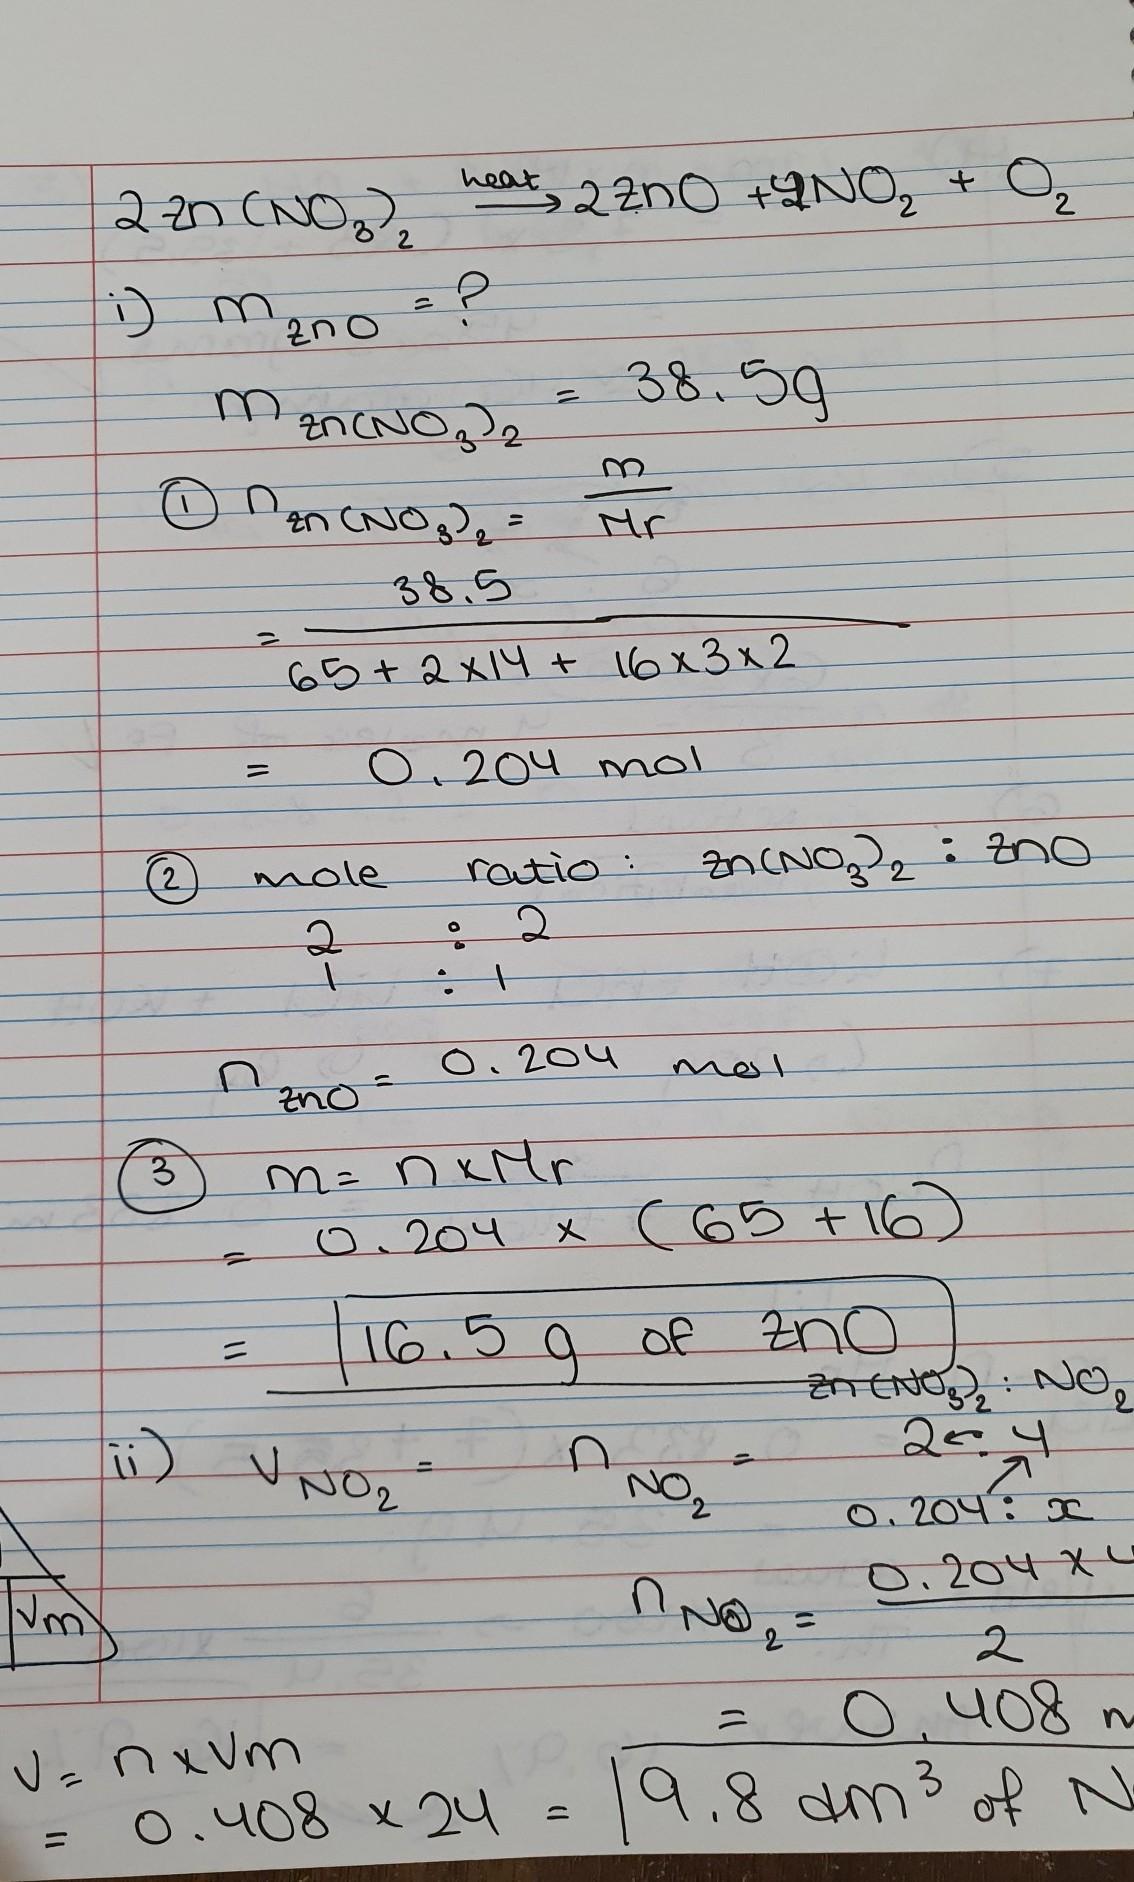 2 Zn (NO3)2 heat → 2 ZnO + 4NO2 + O2
i) m ZnO = ?
m Zn(NO3)2 = 38.5g
① n Zn(NO3)2 = m / Mr
= 38.5 / 65 + 2 x 14 + 16 x 3 x 2
= 0.204 mol
② mole ratio : Zn(NO3)2 : ZnO
2 : 2
1 : 1
n ZnO = 0.204 mol
③ m = n x Mr
= 0.204 x (65 + 16)
= 16.5 g of ZnO
Zn(NO3)2 : NO2
ii) V NO2 = n NO2 = 2 : 4
0.204 : x
n NO2 = 0.204 x 4 / 2
= 0.408
Vm
V = n x Vm
= 0.408 x 24 = 9.8 dm³ of N